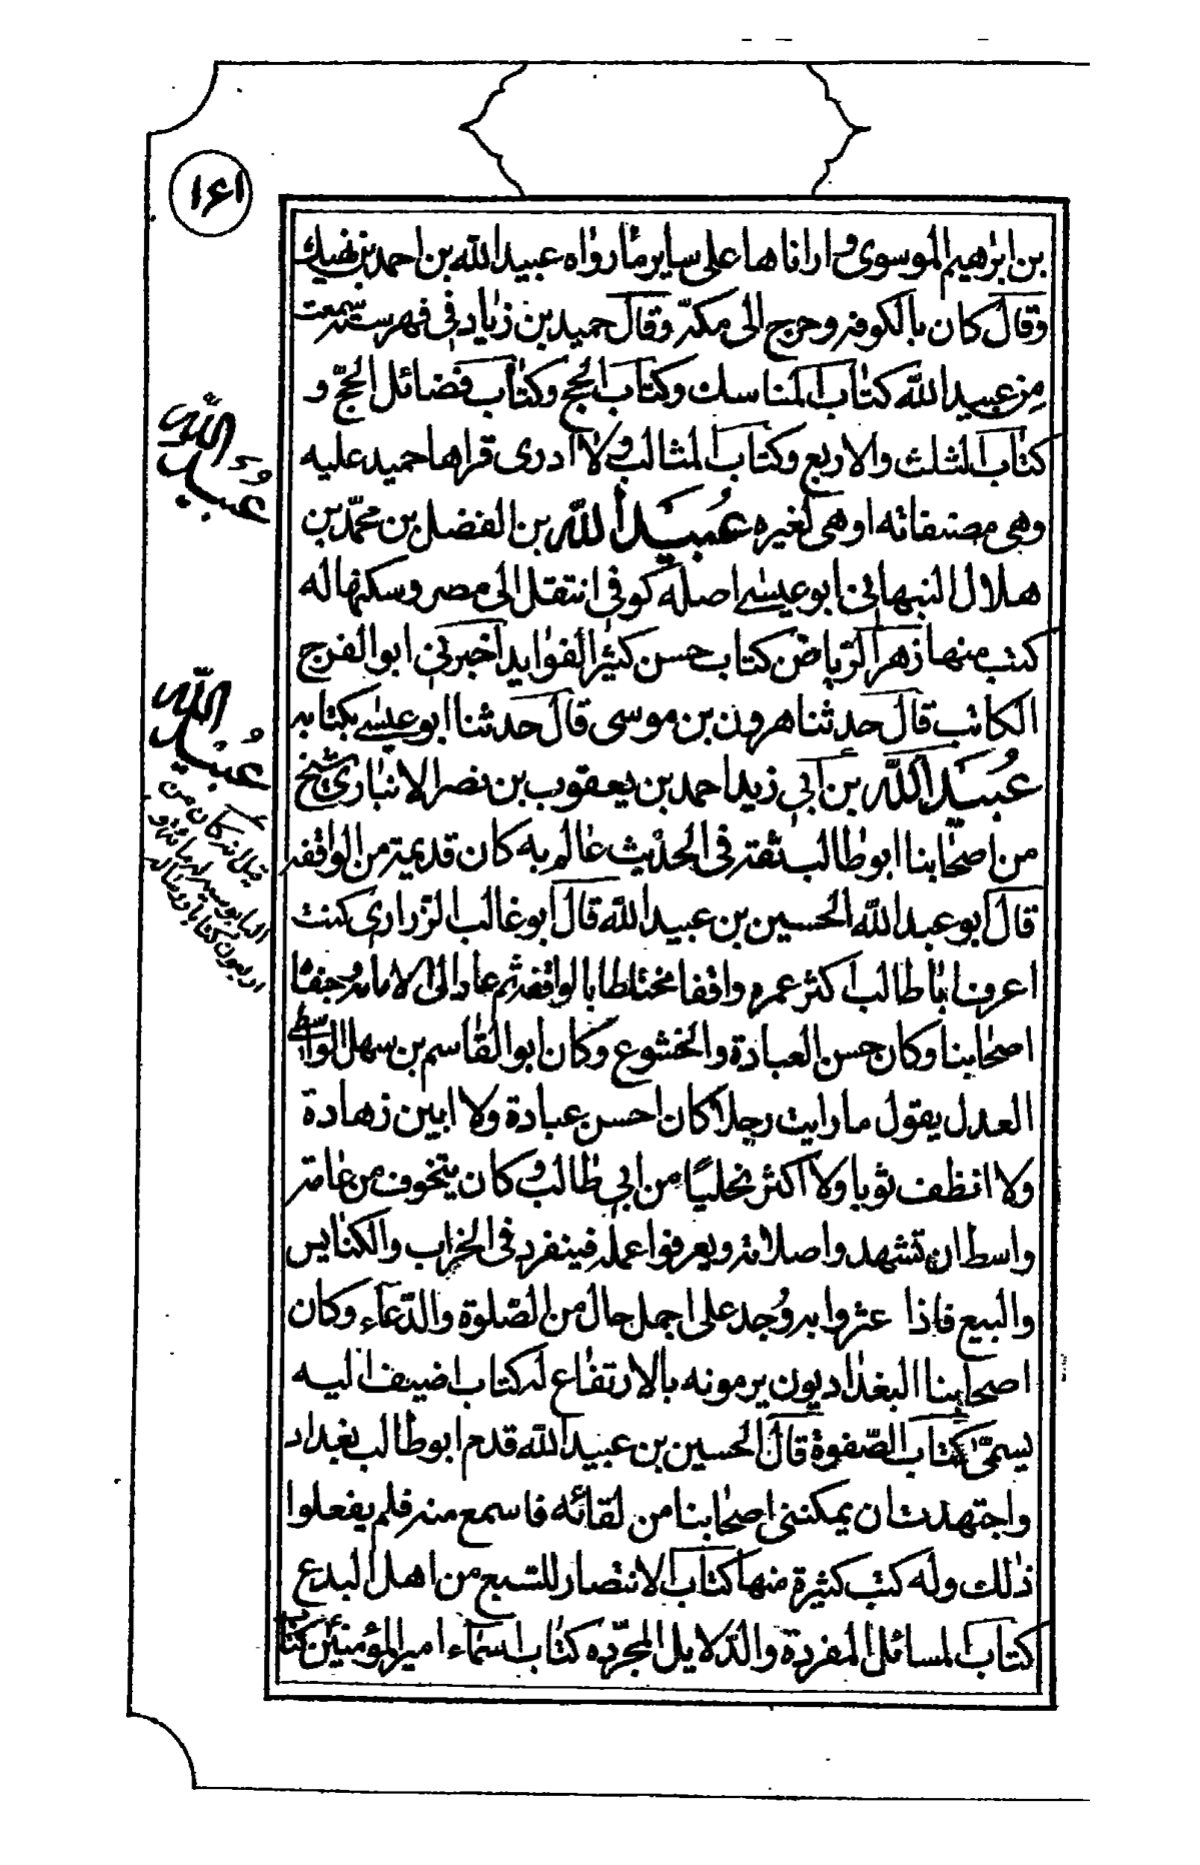 ۱۶۱
بن ابرهيم الموسوى و ارانا ها على ساير ما رواه عبيد الله بن احمد بن نهيك
وقال كان بالكوفه وخرج الى مكة وقال حميد بن زياد فى فهرسته سمعت
من عبيد الله كتاب المناسك وكتاب الحج وكتاب فضائل الحج و
كتاب الثلث والاربع وكتاب المثالب ولا ادرى قراها حميد عليه
وهى مصنفاته اوهى لغيره عُبيد الله بن الفضل بن محمّد بن
هلال النبهانى ابو عيسى اصله كوفى انتقل الى مصر وسكنها له
كتب منها زهر الرياض كتاب حسن كثير الفوايد اخبرنى ابو الفرج
الكاتب قال حدثنا هرون بن موسى قال حدثنا ابو عيسى بكتابه
عُبيد الله بن ابى زيد احمد بن يعقوب بن نصر الانبارى شيخ
من اصحابنا ابو طالب ثقة فى الحديث عالم به كان قديمة من الواقفه
قال ابو عبد الله الحسين بن عبيد الله قال ابو غالب الزرارى كنت
اعرف ابا طالب اكثر عمره واقفا مختلطا بالواقفه ثم عاد الى الامامة وجفاه
اصحابنا وكان حسن العبادة والخشوع وكان ابو القاسم بن سهل الواسطى
العدل يقول ما رايت رجلا كان احسن عبادة ولا ابين زهادة
ولا انظف ثوبا ولا اكثر تحليًا من ابى طالب و كان يتخوف من عامة
واسط ان تشهدوا صلاته ويعرفوا عمله فينفرد فى الخراب والكنايس
والبيع فاذا عثروا به وُجد على اجمل حال من الصّلوة والدّعاء وكان
اصحابنا البغداديون يرمونه بالارتفاع له كتاب اضيف اليه
يسمّى كتاب الصّفوة قال الحسين بن عبيد الله قدم ابو طالب بغداد
واجتهدت ان يمكننى اصحابنا من لقائه فاسمع منه فلم يفعلوا
ذلك وله كتب كثيرة منها كتاب الانتصار للسبع من اهل البدع
كتاب المسائل المفردة والدّلايل المجرّده كتاب اسماء امير المؤمنين كتاب
عُبيد الله
عُبيد الله